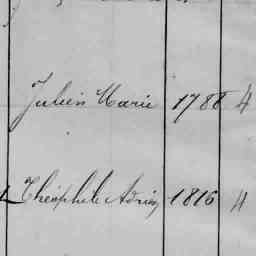 Julien Marie 1788 4
Théophile Adrien 1816 4